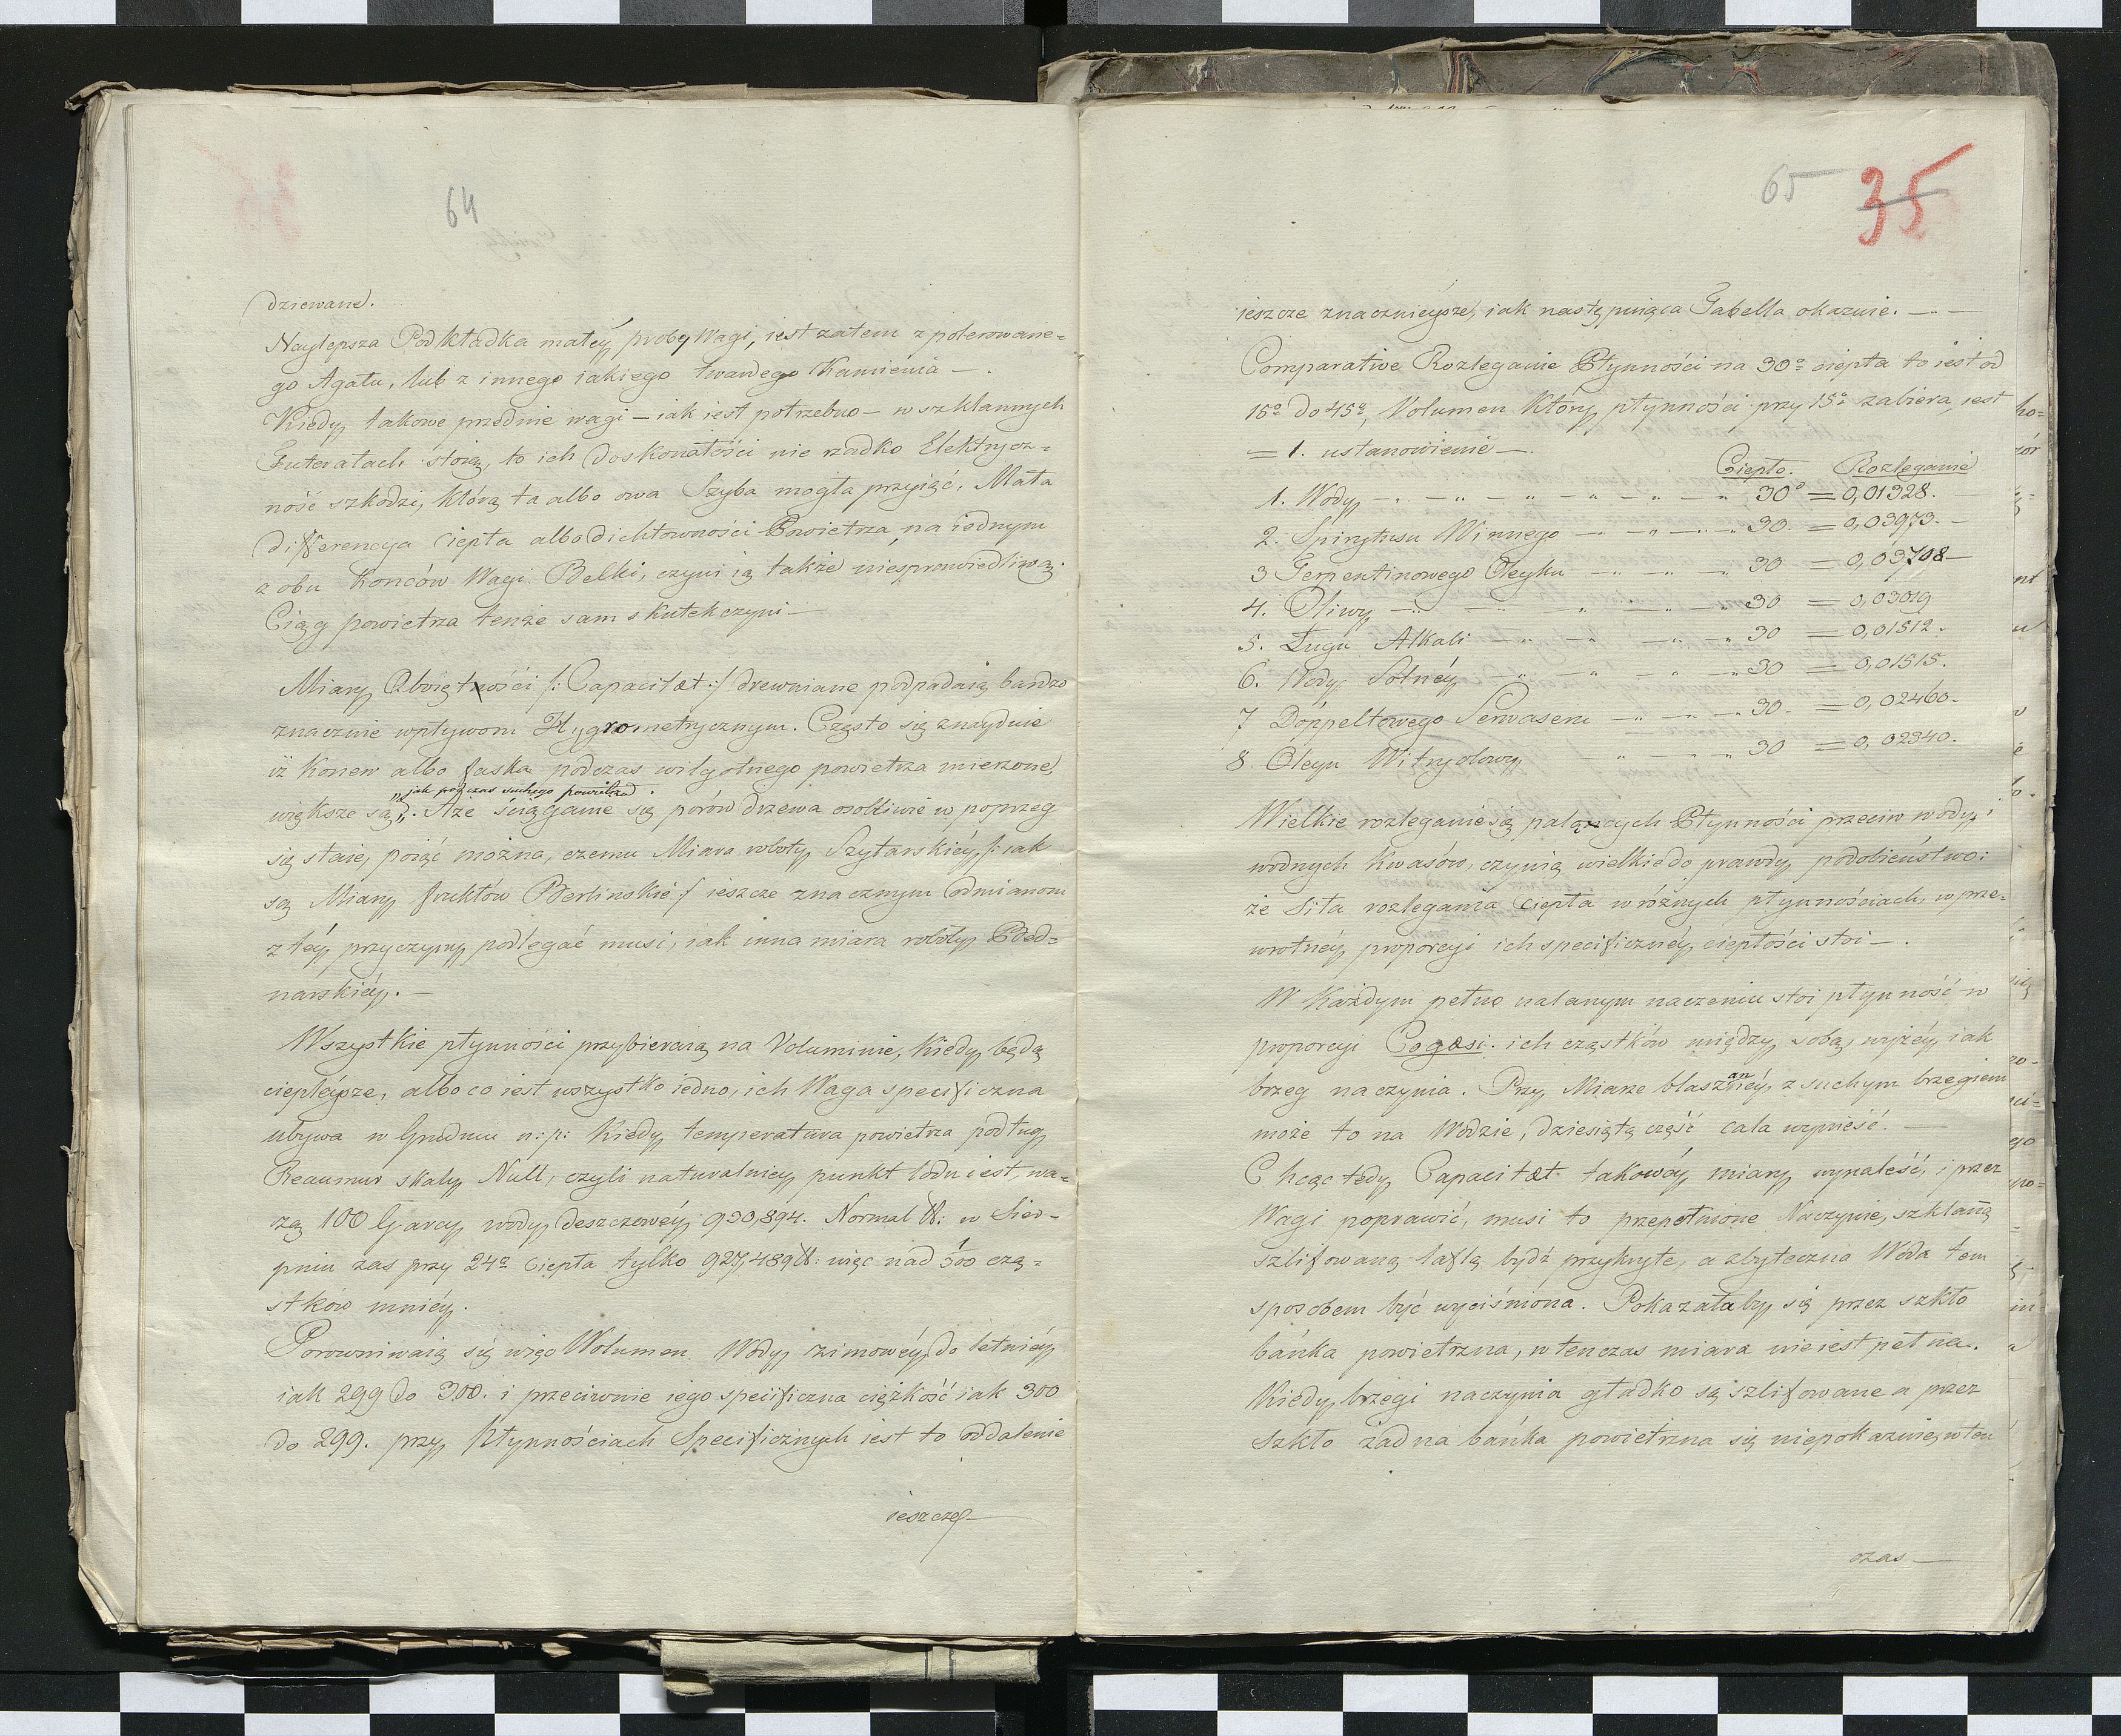 64
dziewane.
Naylepsza Podkładka małey proby Wagi, iest zatem z polerowane=
go Agatu, lub z innego iakiego twardego Kamienia —.
Kiedy takowe przednie wagi — iak iest potrzebno — w szklannych
Futerałach stoią, to ich doskonałości nie rzadko Elektrycz=
ność szkodzi, którą ta albo owa Szyba mogła przyiąć. Mała
differencya ciepła albo dichtowności Powietrza, na iednym
z obu Końców Wagi Belki, czyni ią także niesprawiedliwą.
Ciąg powietrza tenże sam skutek czyni —
Miary Obiętności /: Capacitæt :/ drewniane podpadaią bardzo
znacznie wpływom Hygrometrycznym. Często się znayduie
iż Konew albo faska podczas wilgotnego powietrza mierzone,
„jak podczas suchego powietrza.
większe są„. Aże ściąganie się porów drzewa osobliwie w poprzeg
się staie, poiąć można, czemu Miara roboty Szytarskiéy /: iak
są Miary fruktów Berlinskie :/ ieszcze znacznym odmianom
z téy przyczyny podlegać musi, iak inna miara roboty Bed=
narskiéy. —
Wszystkie płynności przybieraią na Voluminie, Kiedy będą
ciepléysze, albo co iest wszystko iedno, ich Waga specificzna
ubywa w Grudniu n: p: Kiedy temperatura powietrza podług
Reaumur skaly Null, czyli naturalniey punkt lodu iest, wa=
żą 100 Garcy wody deszczowéy 930,894. Normal ℔: w Sier=
pniu zas przy 24° Ciepła tylko 927,489 ℔: więc nad 300 czą=
stków mniéy.
Porowniwaią się więc Wolumen Wody zimowéy do letniéy
iak 299 do 300. i przeciwnie iego specificzna ciężkość iak 300
do 299. przy Płynnościach Specificznych iest to oddalenie
ieszcze —
65 35
ieszcze znacznieysze, iak następuiąca Tabella okazuie. —
Comparative Rozleganie Płynności na 30° ciepła to iest od
15° do 45°, Volumen Który płynności przy 15° zabiera, iest
= 1. ustanowienie —.
Ciepło. Rozleganie
1. Wody 30° = 0,01328.
2. Spirytusu Winnego 30. = 0,03973. —
3 Terpentinowego Oleyku 30 = 0,03708 —
4. Oliwy 30 = 0,03019
5. Ługu Alkali 30 = 0,01512.
6. Wody Solnéy 30 = 0,01515.
7 Doppeltowego Serwaseru 30. = 0,02460.
8. Oleyu Witryolowy 30 = 0,02340.
Wielkie rozleganie się palących Płynności przeciw wody i
wodnych Kwasów, czynią wielkie do prawdy podobieństwo:
że Siła rozlegania Ciepła w różnych płynnościach, w prze=
wrotnéy proporcyi ich specificznéy ciepłości stoi —.
W Każdym pełno nalanym naczeniu stoi płynność w
proporcyi Cogæsi. ich cząstków między sobą, wyżéy iak
brzeg naczynia. Przy Miarze blaszanéy, z suchym brzegiem
może to na Wodzie, dziesiątą część cala wynieść. —
Chcąc tedy Capacitæt takowéy miary wynaleść, i przez
Wagi poprawić, musi to przepełnione Naczynie, szklaną
szlifowaną taflą bydź przykryte, a zbyteczna Woda tem
sposobem być wyciśniona. Pokazałaby się przez szkło
bánka powietrzna, w tenczas miara nie iest pełna.
Kiedy brzegi naczynia gładko są szlifowane a przez
Szkło żadna bánka powietrzna się niepokazuie, w ten
czas —